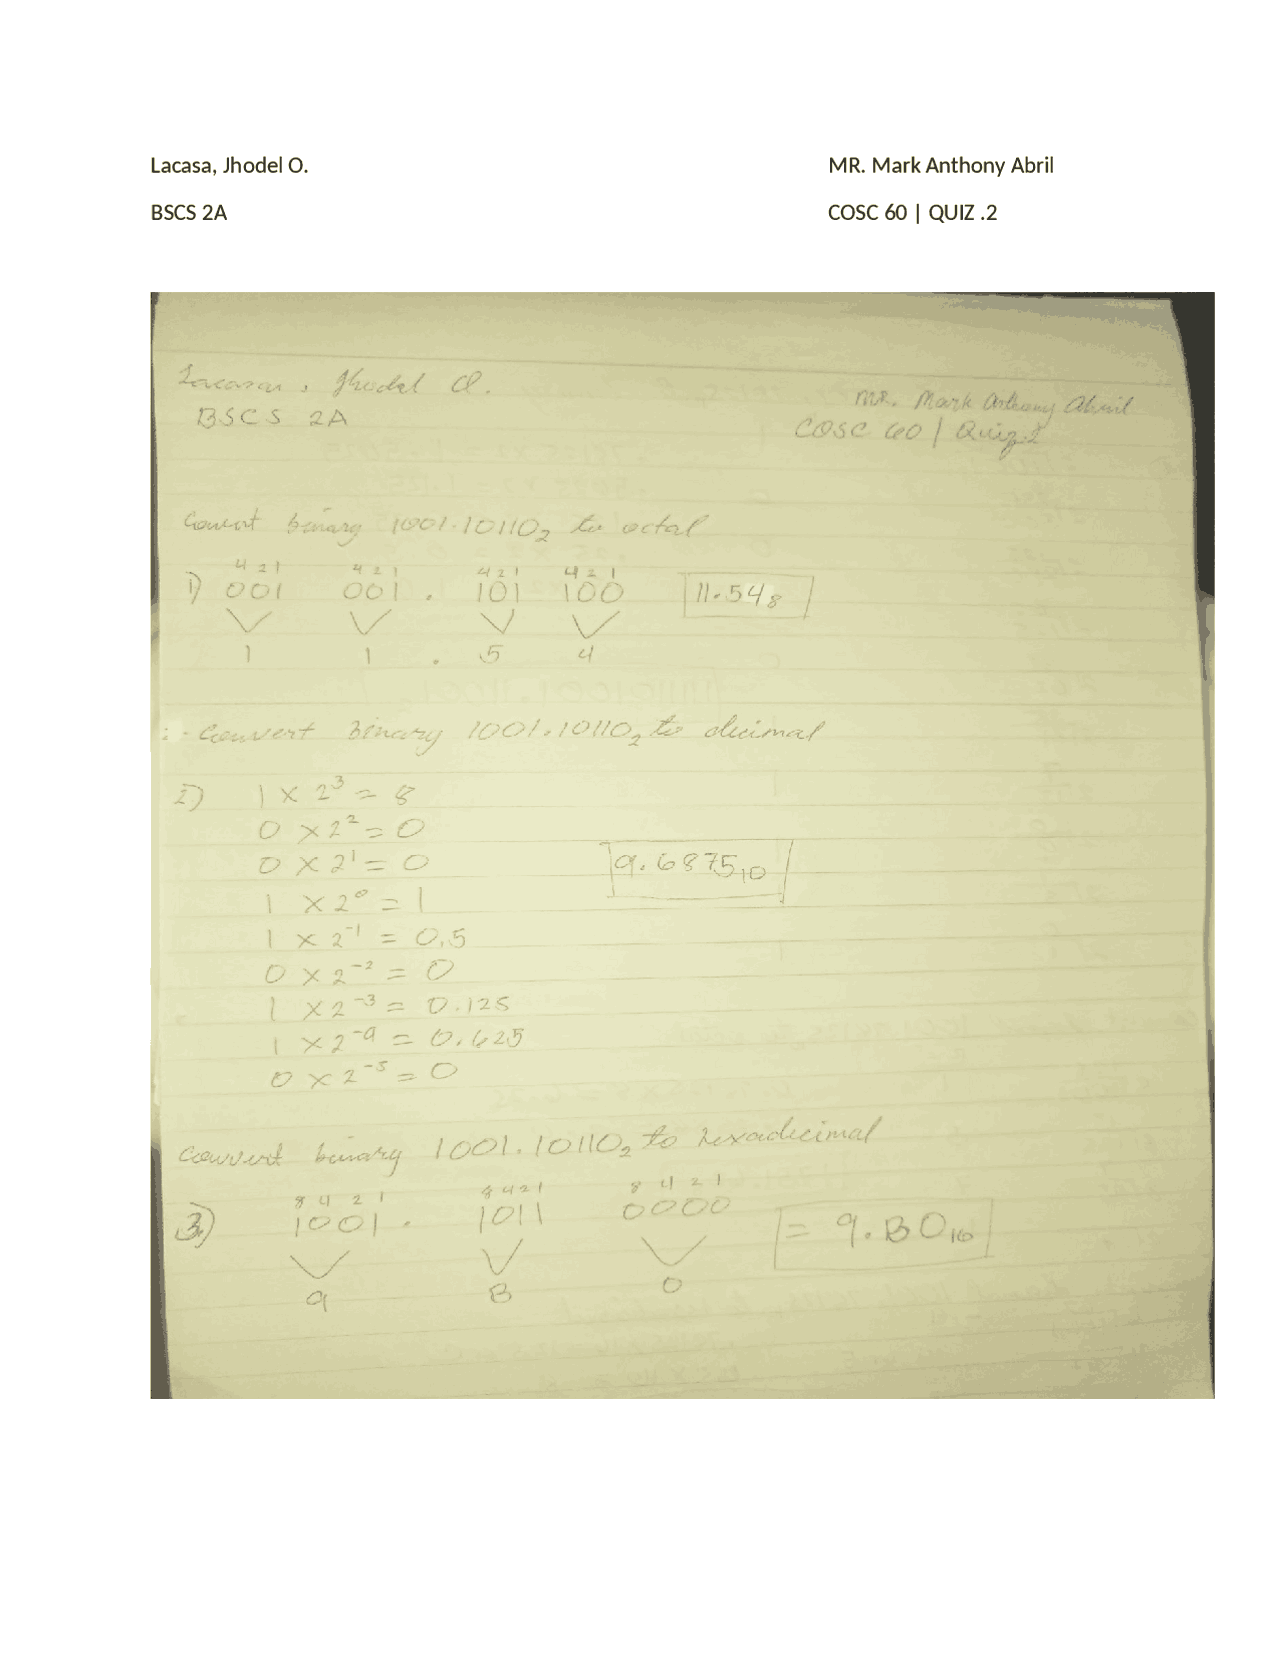 Lacasa, Jhodel O. MR. Mark Anthony Abril
BSCS 2A COSC 60 | QUIZ .2
Lacasa, Jhodel O.
MR. Mark Anthony Abril
BSCS 2A
COSC 60 | Quiz.2
Convert binary 1001.10110₂ to octal
4 2 1 4 2 1 4 2 1 4 2 1
1) 001 001 . 101 100 11.54₈
1 1 . 5 4
Convert Binary 1001.10110₂ to decimal
2) 1 × 2³ = 8
0 × 2² = 0
0 × 2¹ = 0 9.6875₁₀
1 × 2⁰ = 1
1 × 2⁻¹ = 0.5
0 × 2⁻² = 0
1 × 2⁻³ = 0.125
1 × 2⁻⁴ = 0.625
0 × 2⁻⁵ = 0
Convert binary 1001.10110₂ to hexadecimal
8 4 2 1 8 4 2 1 8 4 2 1
3.) 1001 . 1011 0000 = 9.B0₁₆
9 B 0